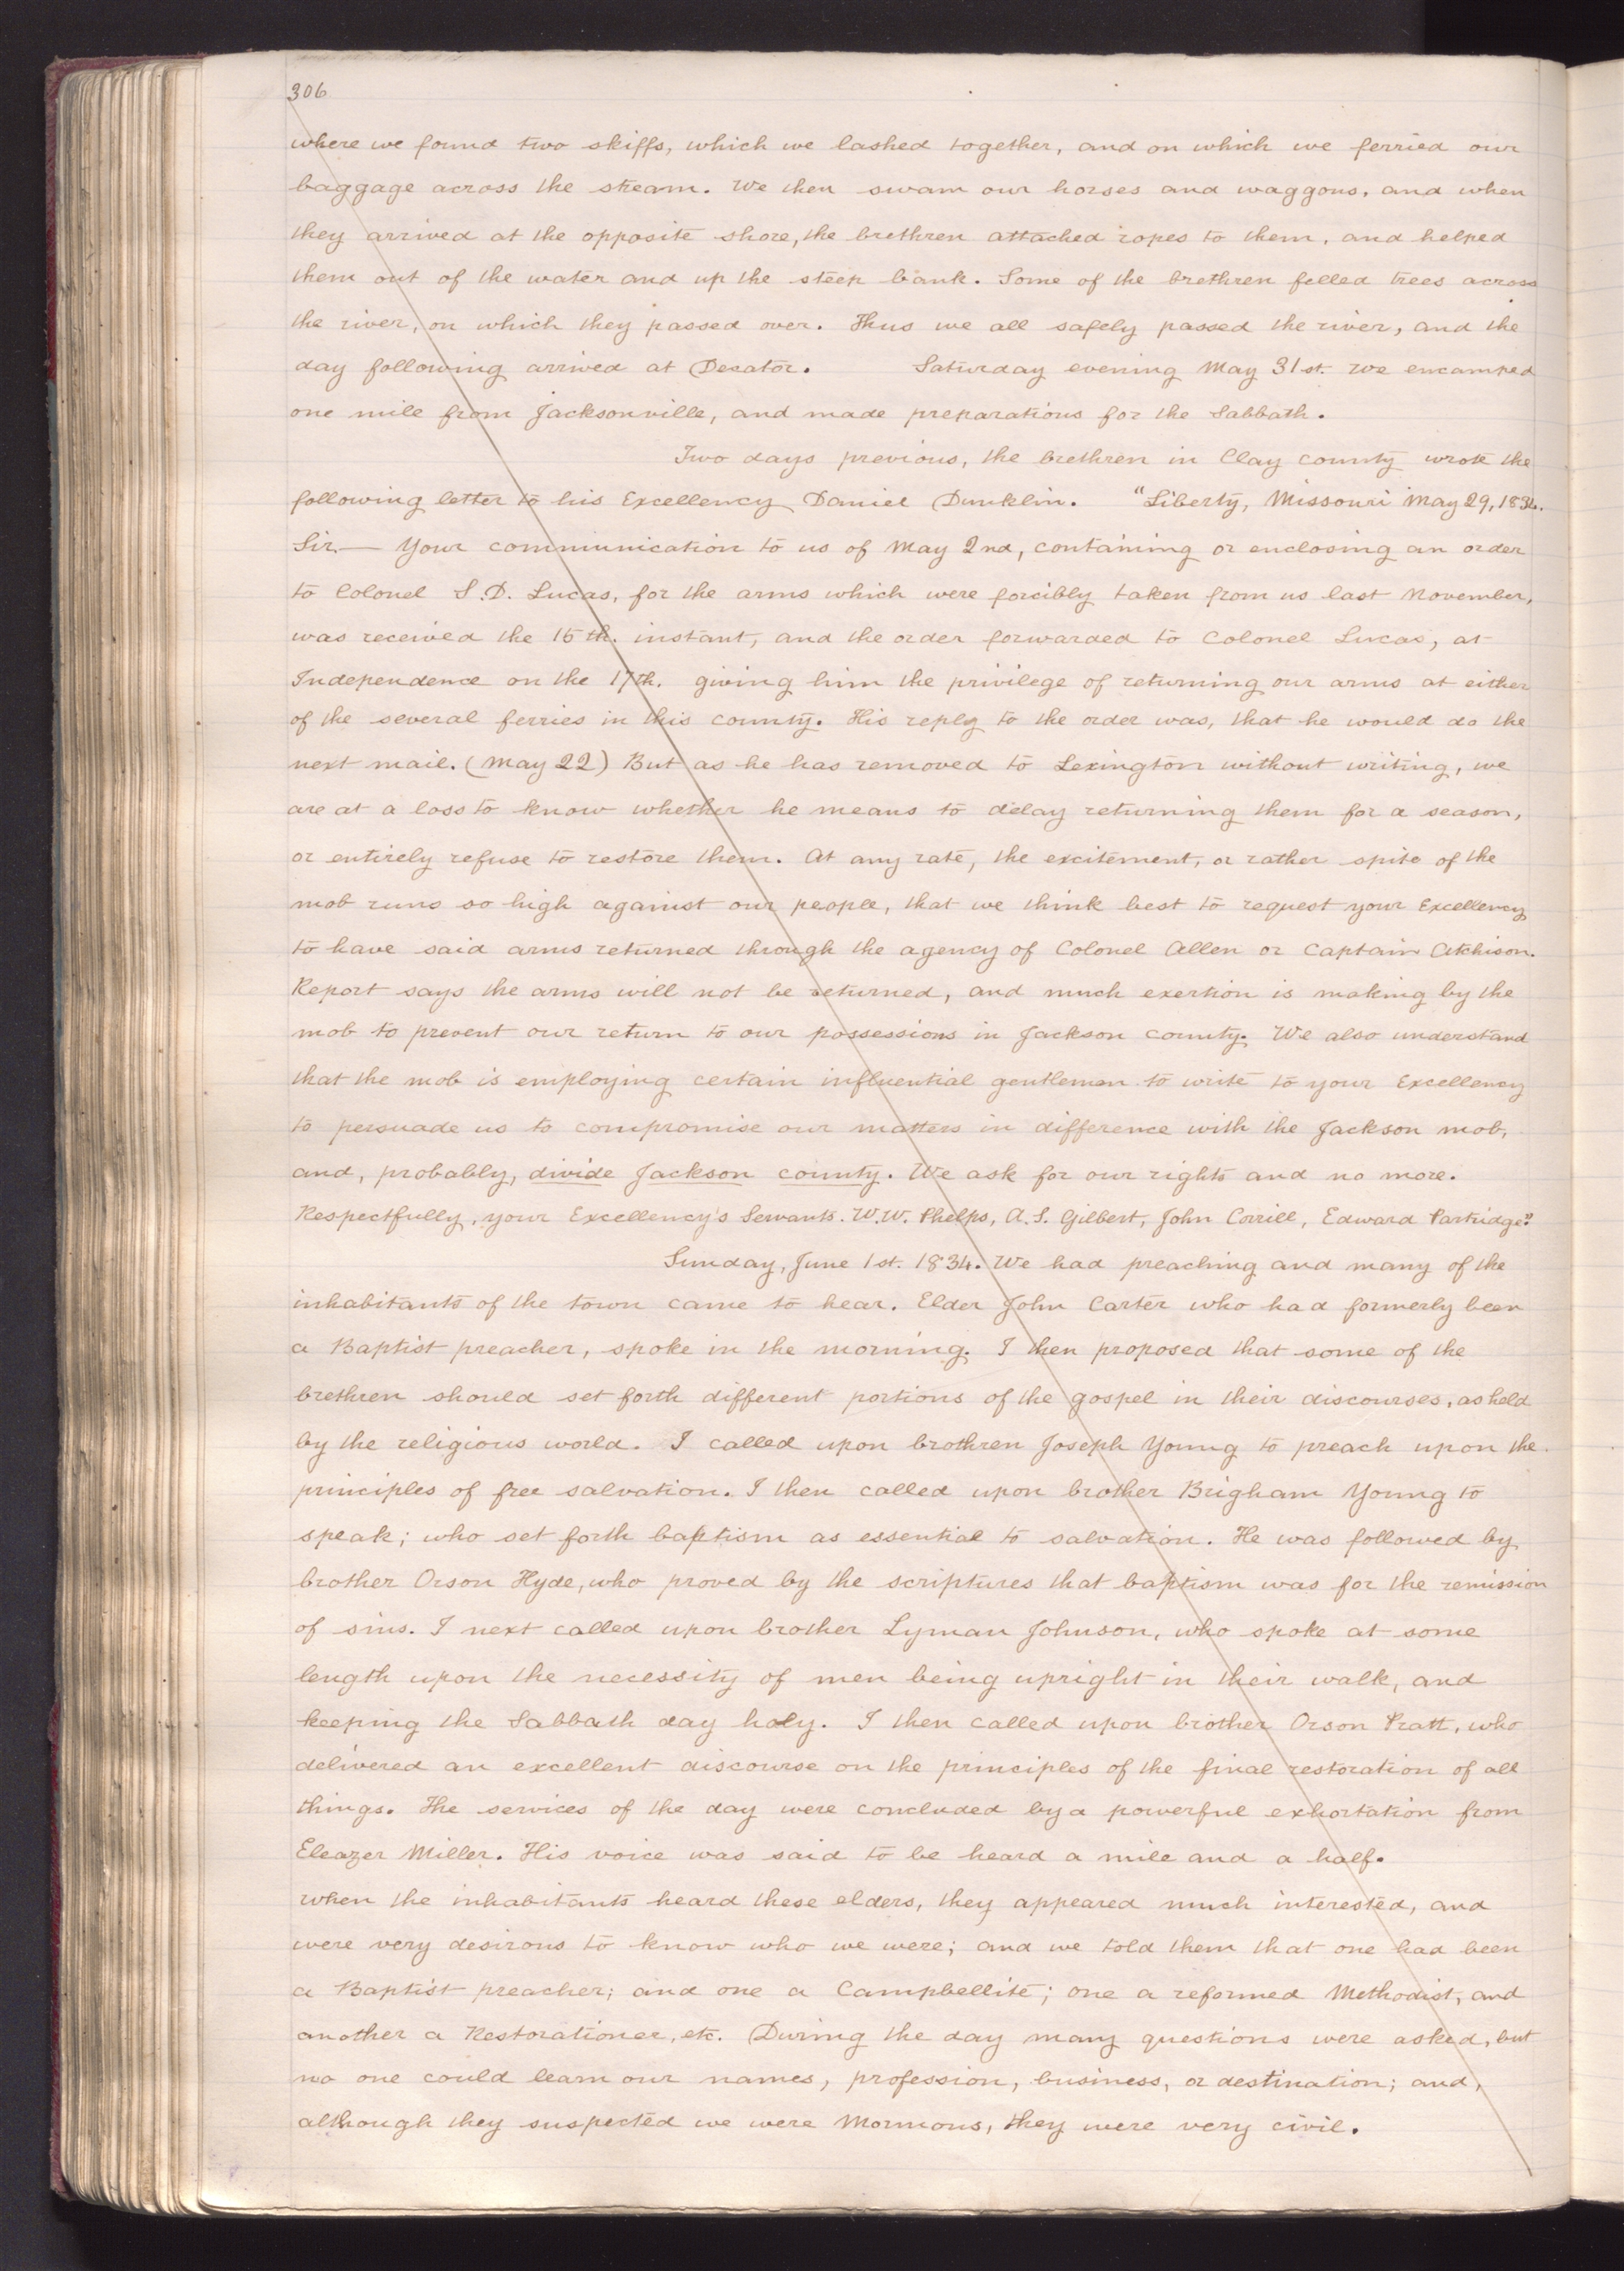 306
where we found two skiffs, which we lashed together, and on which we ferried our
baggage across the stream. We then swam our horses and waggons, and when
they arrived at the opposite shore, the brethren attached ropes to them, and helped
them out of the water and up the steep bank. Some of the brethren felled trees across
the river, on which they passed over. Thus we all safely passed the river, and the
day following arrived at Decator. Saturday evening May 31st. We encamped
one mile from Jacksonville, and made preparations for the Sabbath.
Two days previous, the brethren in Clay county wrote the
following letter to his Excellency Daniel Dunklin. "Liberty, Missouri May 29, 1834.
Sir — Your communication to us of May 2nd, containing or enclosing an order
to Colonel S. D. Lucas, for the arms which were forcibly taken from us last November,
was received the 15th. instant, and the order forwarded to Colonel Lucas, at
Independence on the 17th. giving him the privilege of returning our arms at either
of the several ferries in this county. His reply to the order was, that he would do the
next mail. (May 22) But as he has removed to Lexington without writing, we
are at a loss to know whether he means to delay returning them for a season,
or entirely refuse to restore them. At any rate, the excitement, or rather spite of the
mob runs so high against our people, that we think best to request your Excellency
to have said arms returned through the agency of Colonel Allen or Captain Atchison.
Report says the arms will not be returned, and much exertion is making by the
mob to prevent our return to our possessions in Jackson county. We also understand
that the mob is employing certain influential gentlemen to write to your Excellency
to persuade us to compromise our matters in difference with the Jackson mob,
and, probably, divide Jackson county. We ask for our rights and no more.
Respectfully, your Excellency's Servants. W. W. Phelps, A. S. Gilbert, John Corrill, Edward Partridge."
Sunday, June 1st. 1834. We had preaching and many of the
inhabitants of the town came to hear. Elder John Carter who had formerly been
a Baptist preacher, spoke in the morning. I then proposed that some of the
brethren should set forth different portions of the gospel in their discourses, as held
by the religious world. I called upon brothren Joseph Young to preach upon the
principles of free salvation. I then called upon brother Brigham Young to
speak; who set forth baptism as essential to salvation. He was followed by
brother Orson Hyde, who proved by the scriptures that baptism was for the remission
of sins. I next called upon brother Lyman Johnson, who spoke at some
length upon the necessity of men being upright in their walk, and
keeping the Sabbath day holy. I then called upon brother Orson Pratt, who
delivered an excellent discourse on the principles of the final restoration of all
things. The services of the day were concluded by a powerful exhortation from
Eleazer Miller. His voice was said to be heard a mile and a half.
when the inhabitants heard these elders, they appeared much interested, and
were very desirous to know who we were; and we told them that one had been
a Baptist preacher; and one a Campbellite; one a reformed Methodist, and
another a Restorationer, etc. During the day many questions were asked, but
no one could learn our names, profession, business, or destination; and,
although they suspected we were Mormons, they were very civil.